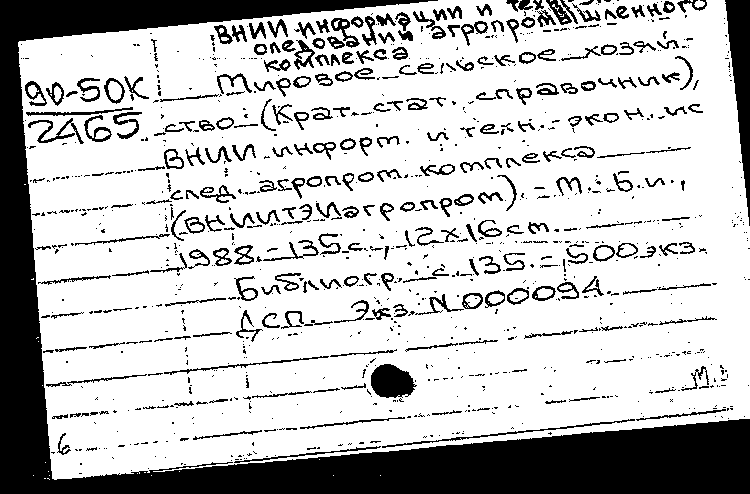 ВНИИ информации и техн.
следований агропромышленного
комплекса
90-50К
2465
Мировое сельское хозяй-
ство: (Крат. стат. справочник),
ВНИИ информ. и техн.-экон. ис
след. агропром. комплекса
(ВНИИТЭИагропром). - М.: Б.и.,
1988. - 135с.; 12х16см.
Библиогр.: с. 135. - 500экз.
ДСП. Экз. N 000094.
М.
6